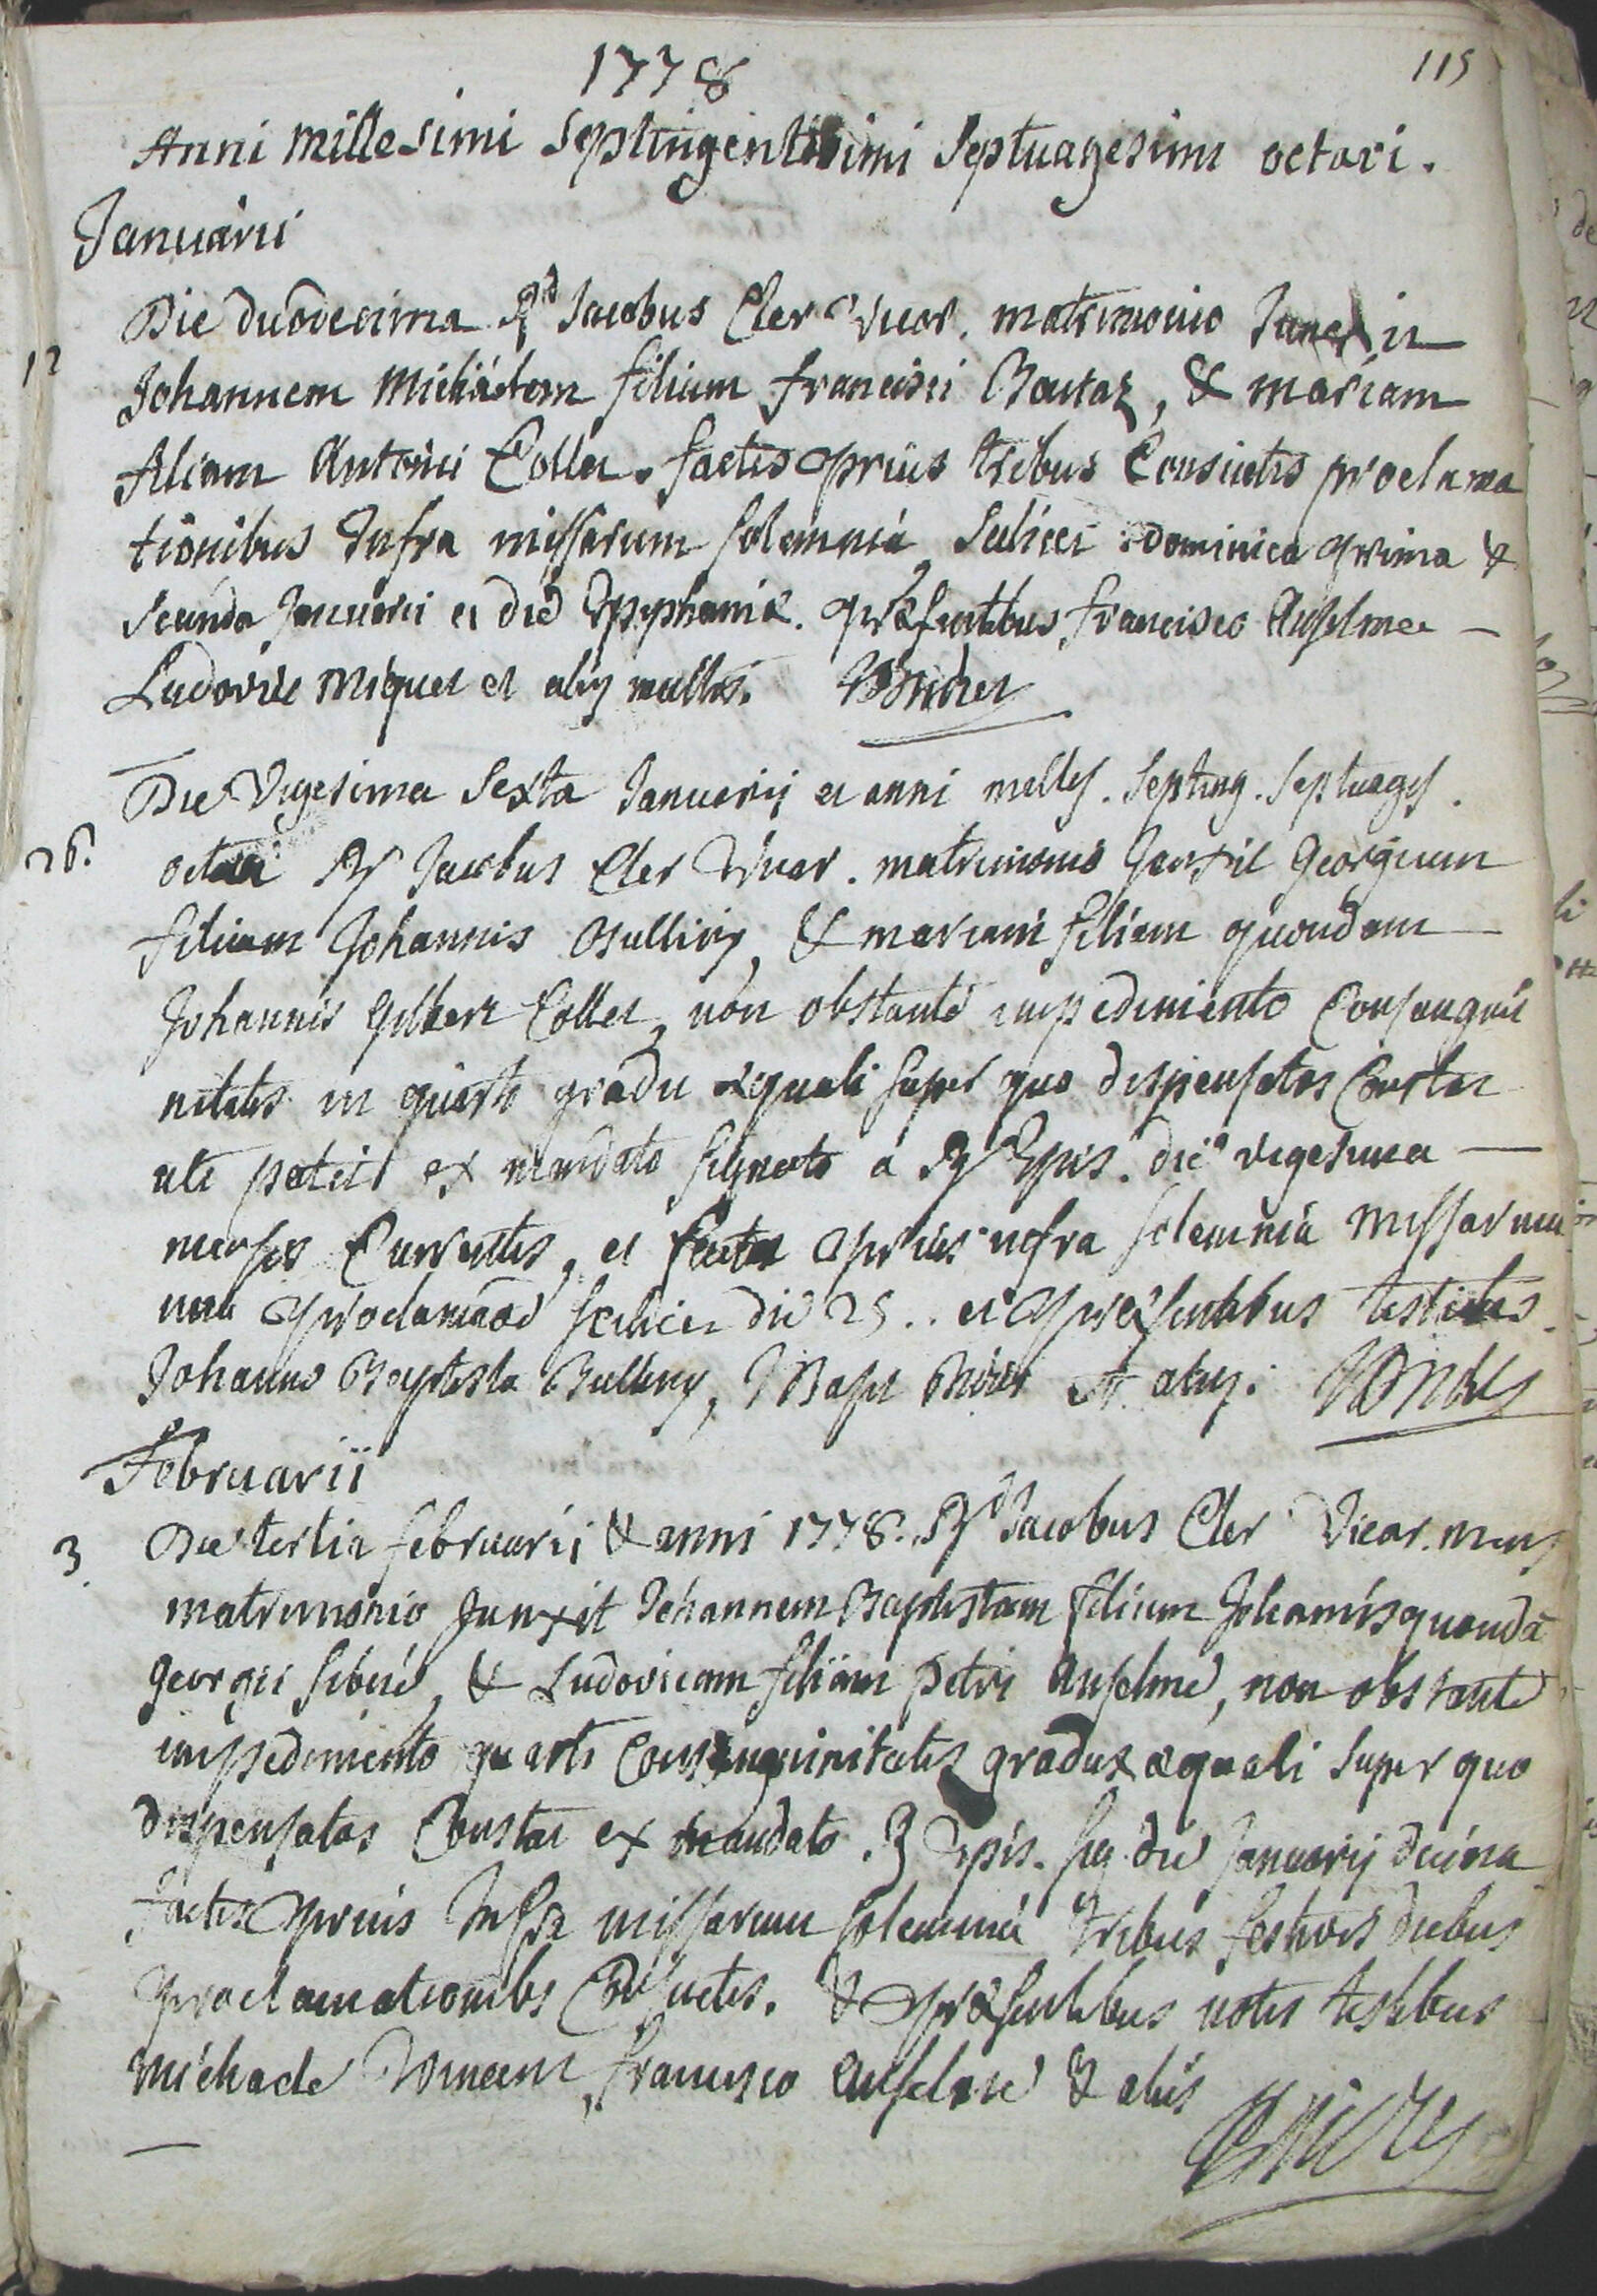 1778
115
Anni millesimi septingentesimi septuagesimi octavi.
Januarii
Die duodecima Rd Jacobus Cler vicar. matrimonio Junxit
12
Johannem filium francisci & mariam
filiam Antonii Collet. factis prius tribus Consuetis proclama
tionibus Infra missarum solemnia, scilicet dominica prima &
secunda Januarii et die Epyphaniæ. præsentibus francisco Anselmet
Ludovico et alijs multis.
Die vigesima sexta Januarij et anni milles. septing. septuages.
26.
octavi Rd Jacobus Cler vicar. matrimonio Junxit Georgium
filium Johannis & mariam filiam quondam
Johannis Collet, non obstante impedimento Consangui
nitatis in quarto gradu æquali super quo dispensatos Constat
uti patet ex mandato signato a Rd Epis. die vigesima
mensis Currentis, et facta prius infra solemnia missarum
una proclamaoe scilicet die 25.. et præsentibus testibus
Johanne Baptista et alijs.
Februarii
3.
Die tertia februarij & anni 1778. Rd Jacobus Cler vicar. meus
matrimonio Junxit Johannem Baptistam filium Johannis quondã
georgii & Ludovicam filiam petri Anselme, non obstante
impedimento quarti Consanguinitatis gradus æquali super quo
dispensatos Constat ex mandato Epis. sig. die Januarij decima
factis prius Infra missarum solemnia tribus festivis diebus
proclamationibs Consuetis. & præsentibus notis testibus
michaele francisco Anselme & aliis